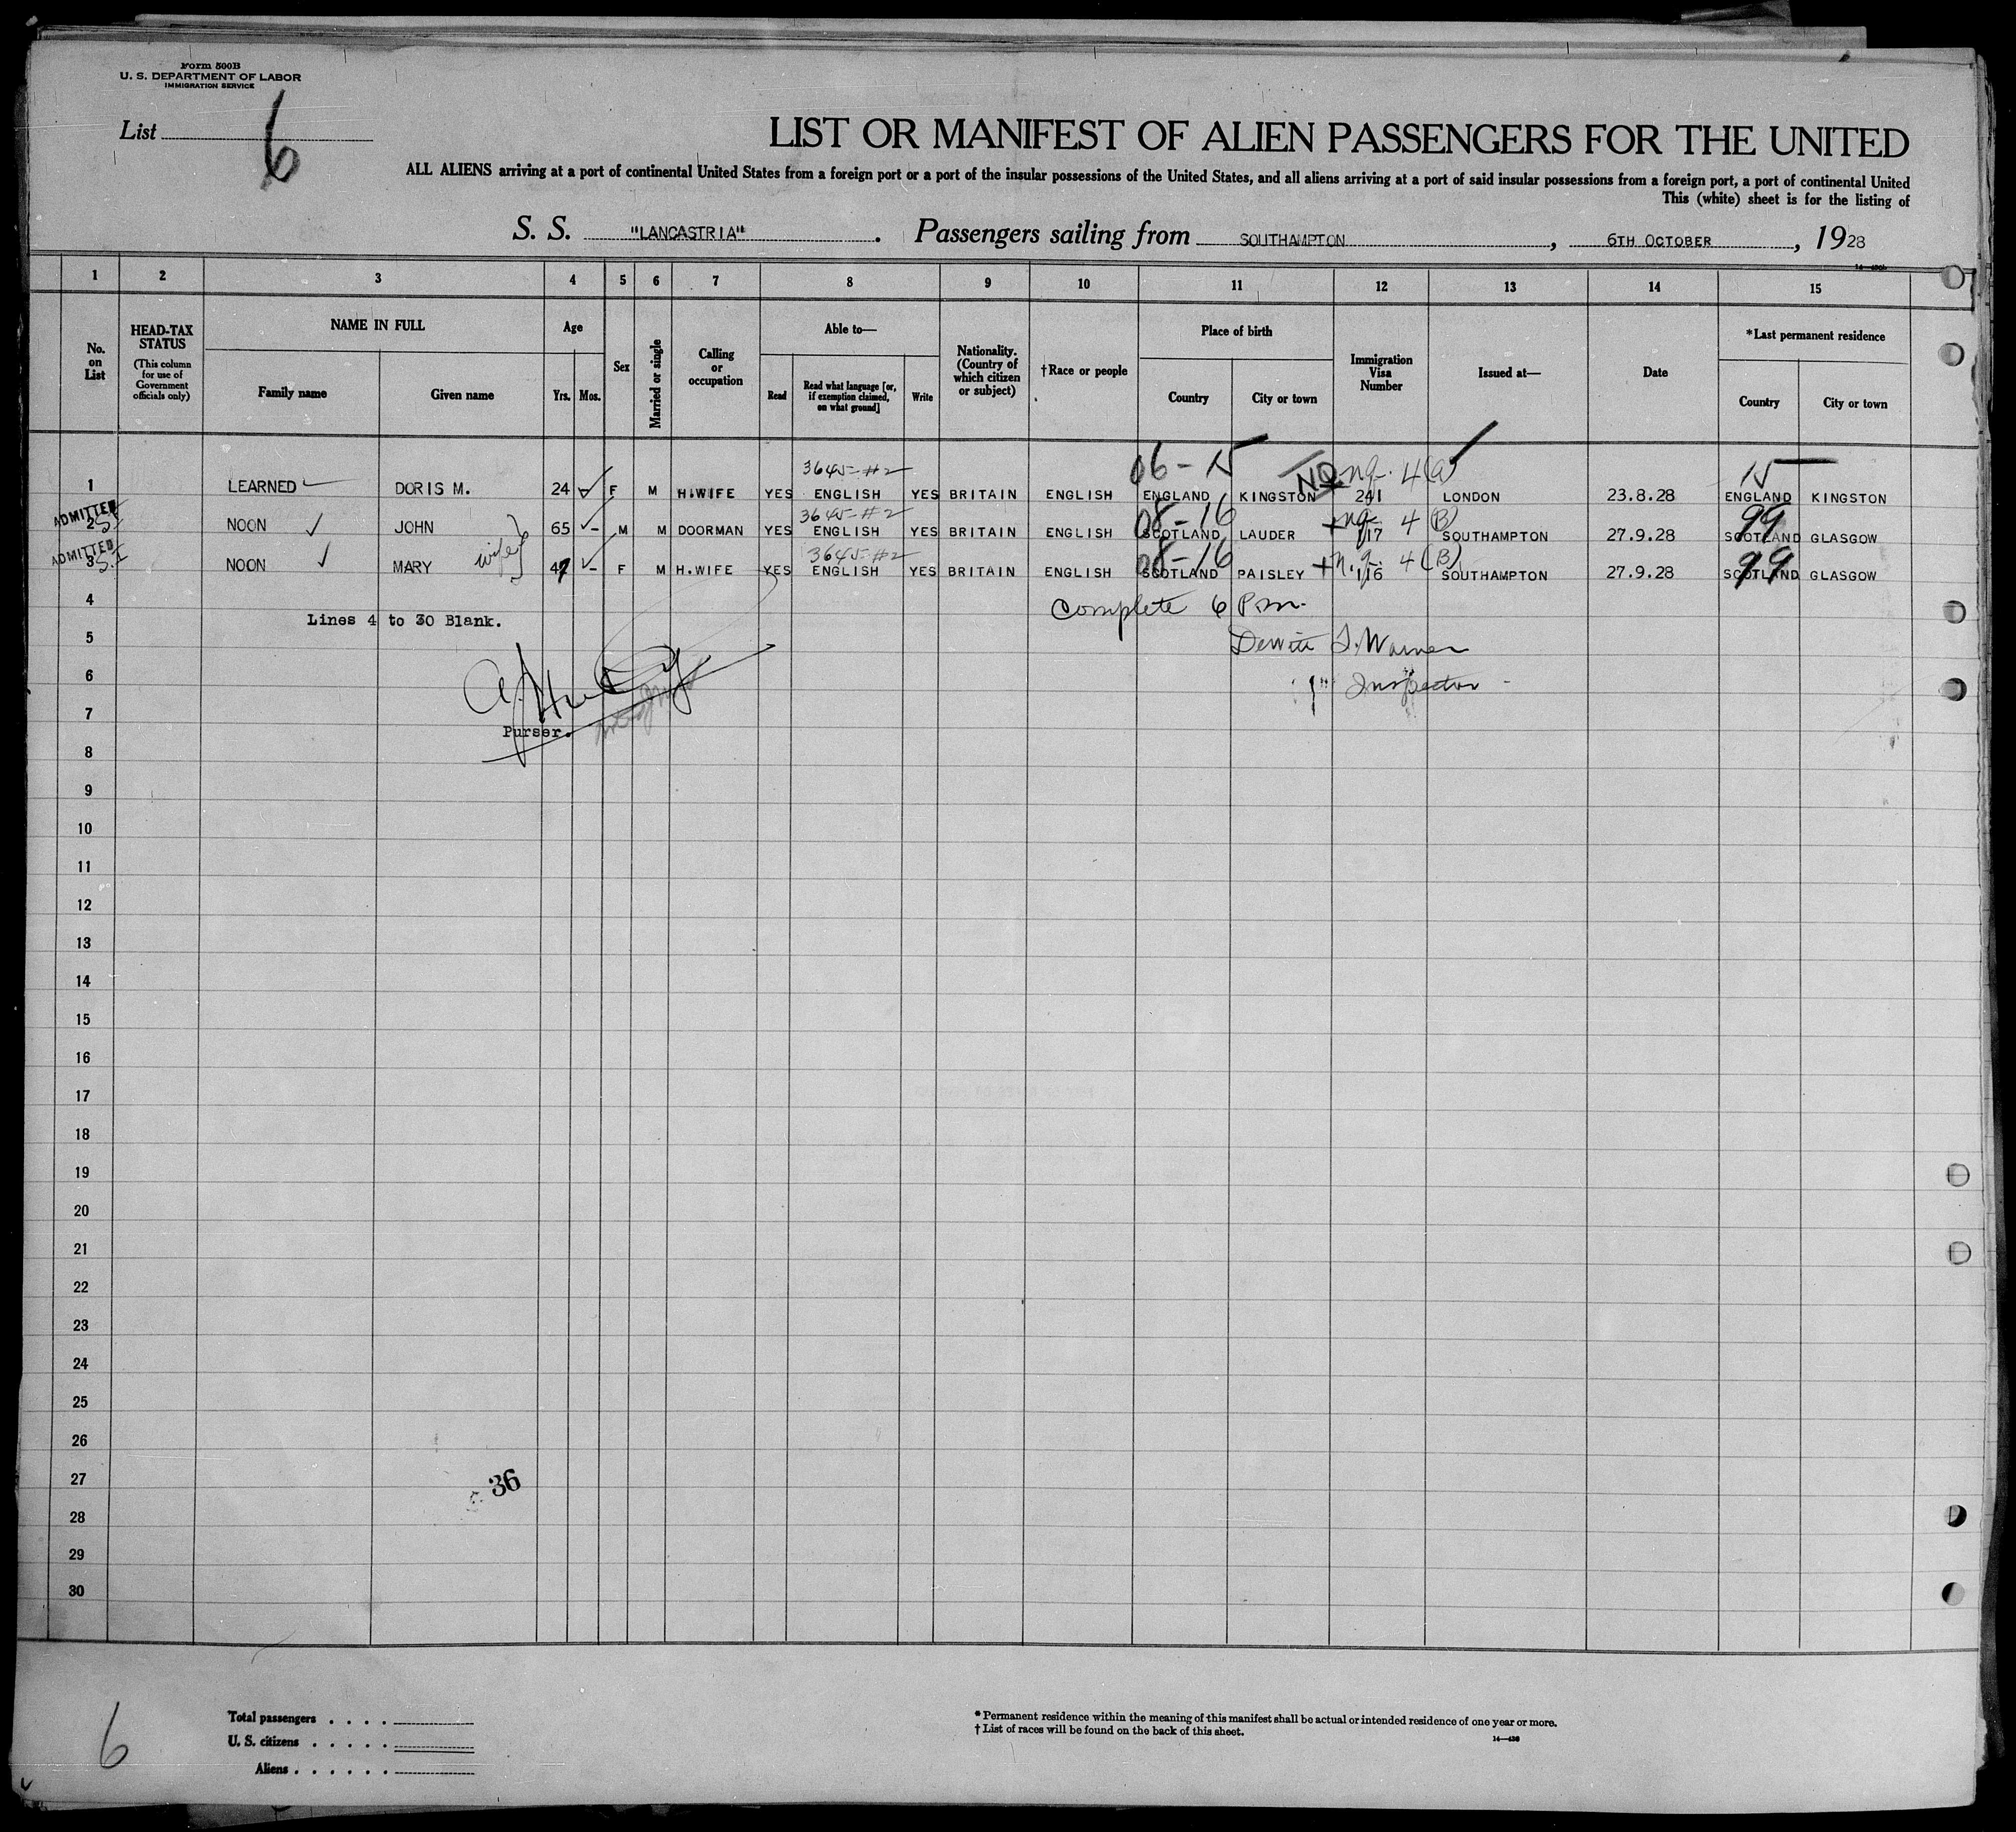 Form 500B
U. S. DEPARTMENT OF LABOR
IMMIGRATION SERVICE
List 6
LIST OR MANIFEST OF ALIEN PASSENGERS FOR THE UNITED
ALL ALIENS arriving at a port of continental United States from a foreign port or a port of the insular possessions of the United States, and all aliens arriving at a port of said insular possessions from a foreign port, a port of continental United
This (white) sheet is for the listing of
S. S. "LANCASTRIA". Passengers sailing from SOUTHAMPTON, 6TH OCTOBER, 1928
1 2 3 4 5 6 7 8 9 10 11 12 13 14 15
No. on List
HEAD-TAX STATUS
(This column for use of Government officials only)
NAME IN FULL
Family name Given name
Age
Yrs. Mos.
Sex
Married or single
Calling or occupation
Able to—
Read
Read what language [or, if exemption claimed, on what ground]
Write
Nationality. (Country of which citizen or subject)
†Race or people
Place of birth
Country City or town
Immigration Visa Number
Issued at—
Date
*Last permanent residence
Country City or town
3645-#2 06-15 NQ. 4(a) 15
1 LEARNED DORIS M. 24 F M H.WIFE YES ENGLISH YES BRITAIN ENGLISH ENGLAND KINGSTON 241 LONDON 23.8.28 ENGLAND KINGSTON
ADMITTED 3645-#2 08-16 nq. 4(B) 99
2 S.I NOON JOHN 65 - M M DOORMAN YES ENGLISH YES BRITAIN ENGLISH SCOTLAND LAUDER 117 SOUTHAMPTON 27.9.28 SCOTLAND GLASGOW
ADMITTED wife 3645-#2 08-16 n.q. 4(B) 99
3 S.I NOON MARY 47 - F M H.WIFE YES ENGLISH YES BRITAIN ENGLISH SCOTLAND PAISLEY 116 SOUTHAMPTON 27.9.28 SCOTLAND GLASGOW
4 Complete 6 P.m.
Lines 4 to 30 Blank.
5 Dewitt
6 Inspector
7
Purser.
8
9
10
11
12
13
14
15
16
17
18
19
20
21
22
23
24
25
26
27 36
28
29
30
Total passengers . . . .
U. S. citizens . . . . .
Aliens . . . . . .
6
* Permanent residence within the meaning of this manifest shall be actual or intended residence of one year or more.
† List of races will be found on the back of this sheet.